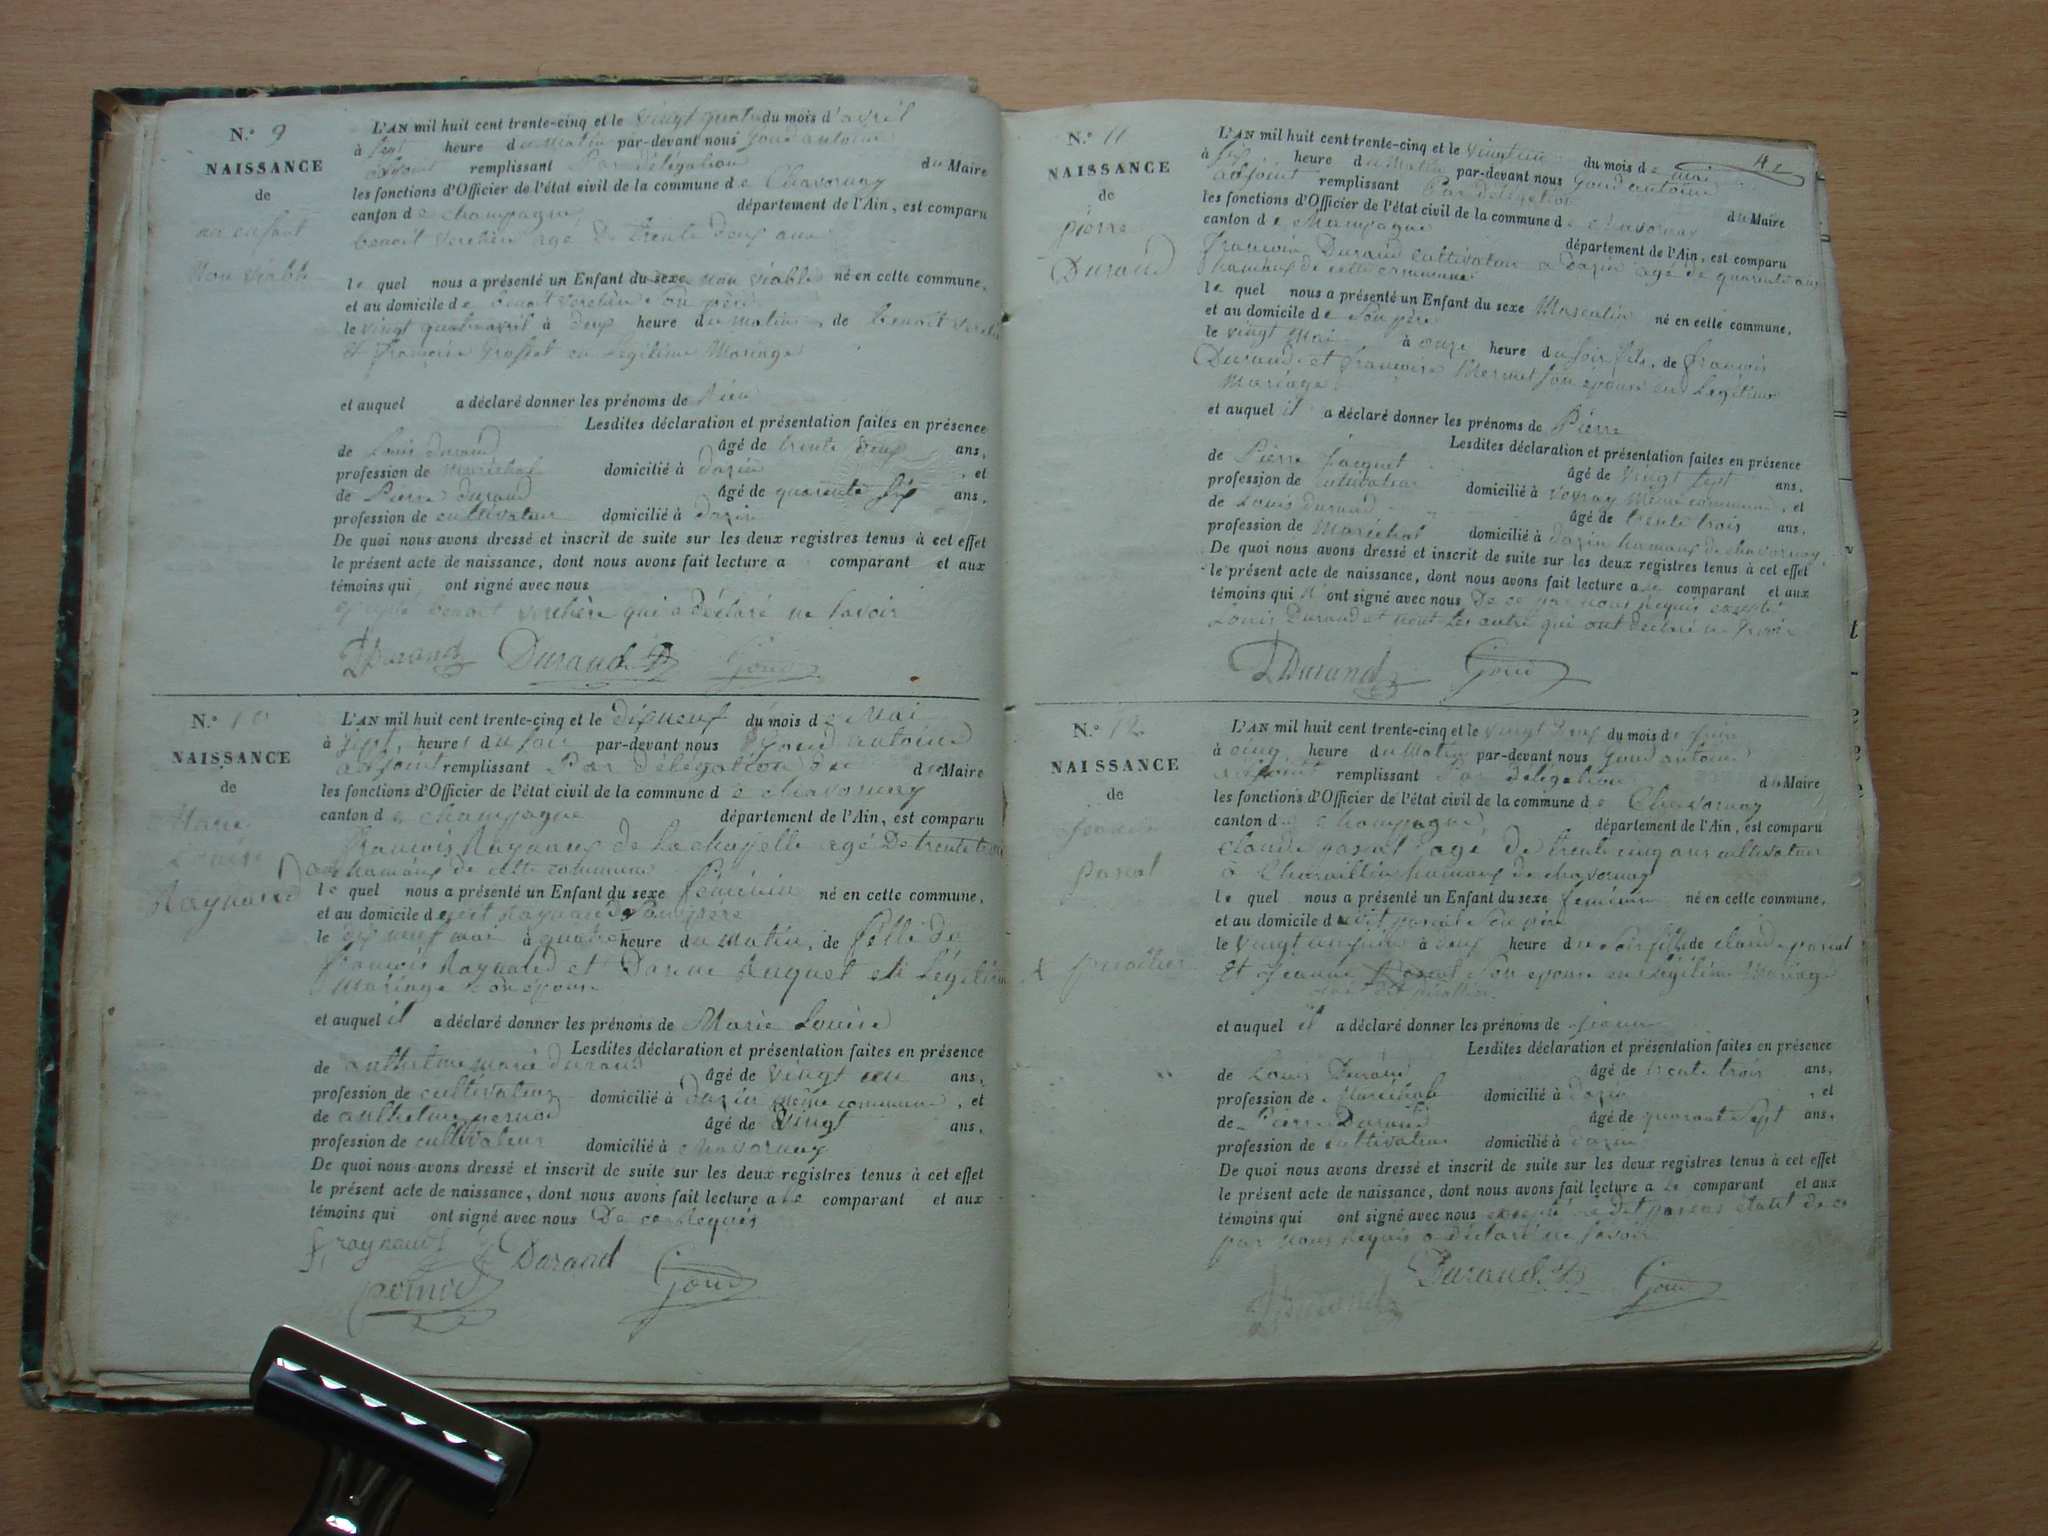 N.° 9
NAISSANCE
de
un enfant
Non viable
L'AN mil huit cent trente-cinq et le vingt quatre du mois d'avril
à sept heure du matin par-devant nous Goud antoine
adjoint remplissant Par délégation du Maire
les fonctions d'Officier de l'état civil de la commune de Chavornay
canton de champagne département de l'Ain, est comparu
benoit verchère agé De trente deux ans
le quel nous a présenté un Enfant du sexe non viable né en cette commune,
et au domicile de benoit verchère son père
le vingt quatre avril à deux heure du matin, de benoit verchère
et françoise Grosset en Légitime Mariage
et auquel a déclaré donner les prénoms de rien
Lesdites déclaration et présentation faites en présence
de Louis durand âgé de trente deux ans,
profession de maréchal domicilié à dazin, et
de Pierre durand âgé de quarente six ans,
profession de cultivateur domicilié à dazin
De quoi nous avons dressé et inscrit de suite sur les deux registres tenus à cet effet
le présent acte de naissance, dont nous avons fait lecture a comparant et aux
témoins qui ont signé avec nous
excepté benoit verchère qui a déclaré ne savoir
Durand Durand Goud
N.° 10
NAISSANCE
de
Marie
Louise
Raynaud
L'AN mil huit cent trente-cinq et le dixneuf du mois de Mai
à sept, heures du soir par-devant nous Goud antoine
adjoint remplissant Par délégation du Maire
les fonctions d'Officier de l'état civil de la commune de chavornay
canton de champagne département de l'Ain, est comparu
françois Raynaud de la chapelle agé De trente trois
ans hamaux de cette commune
le quel nous a présenté un Enfant du sexe féminin né en cette commune,
et au domicile dudit Raynaud son père
le dix neuf mai à quatre heure du matin, de fille de
françois Raynaud et Huguet en Légitime
Mariage son épouse
et auquel il a déclaré donner les prénoms de Marie Louise
Lesdites déclaration et présentation faites en présence
de anthelme marie durand âgé de vingt un ans,
profession de cultivateur domicilié à dazin même commune, et
de anthelme pernod âgé de Vingt ans,
profession de cultivateur domicilié à chavornay
De quoi nous avons dressé et inscrit de suite sur les deux registres tenus à cet effet
le présent acte de naissance, dont nous avons fait lecture a le comparant et aux
témoins qui ont signé avec nous De ce Requis
f raynaud Durand
pernod Goud
N.° 11
NAISSANCE
de
pierre
Durand
L'AN mil huit cent trente-cinq et le vingt un du mois de mai
à six heure du Matin par-devant nous Goud antoine
adjoint remplissant Par délégation du Maire
les fonctions d'Officier de l'état civil de la commune de chavornay
canton de champagne département de l'Ain, est comparu
françois Durand cultivateur a dazin agé de quarente ans
hamaux de cette commune
le quel nous a présenté un Enfant du sexe Masculin né en cette commune,
et au domicile de son père
le vingt Mai à onze heure du soir fils, de françois
Durand et françoise Mermet son épouse en Légitime
Mariage
et auquel il a déclaré donner les prénoms de Pierre
Lesdites déclaration et présentation faites en présence
de Pierre Jacquet âgé de vingt sept ans,
profession de cultivateur domicilié à vovray même commune, et
de Louis durand âgé de trente trois ans,
profession de Maréchal domicilié à dazin hamaux de chavornay
De quoi nous avons dressé et inscrit de suite sur les deux registres tenus à cet effet
le présent acte de naissance, dont nous avons fait lecture a le comparant et aux
témoins qui ont signé avec nous De ce par nous Requis excepté
Louis Durand et non les autre qui ont déclaré ne savoir
LDurand Goud
N.° 12
NAISSANCE
de
pascal
L'AN mil huit cent trente-cinq et le vingt deux du mois de juin
à cinq heure du Matin par-devant nous Goud antoine
adjoint remplissant Par délégation du Maire
les fonctions d'Officier de l'état civil de la commune de Chavornay
canton de champagne, département de l'Ain, est comparu
claude pascal agé de trente cinq ans cultivateur
à Charaillin hamaux de chavornay
le quel nous a présenté un Enfant du sexe féminin né en cette commune,
et au domicile dudit pascal son père
le vingt un juin à deux heure du soir fille de claude pascal
Et jeanne son épouse en Légitime Mariage
et auquel il a déclaré donner les prénoms de
Lesdites déclaration et présentation faites en présence
de Louis Durand âgé de trente trois ans,
profession de Maréchal domicilié à dazin, et
de Pierre Durand âgé de quarante sept ans,
profession de cultivateur domicilié à dazin
De quoi nous avons dressé et inscrit de suite sur les deux registres tenus à cet effet
le présent acte de naissance, dont nous avons fait lecture a le comparant et aux
témoins qui ont signé avec nous excepté le dit pascal de ce
par nous Requis a déclaré ne savoir
Durand Durand Goud